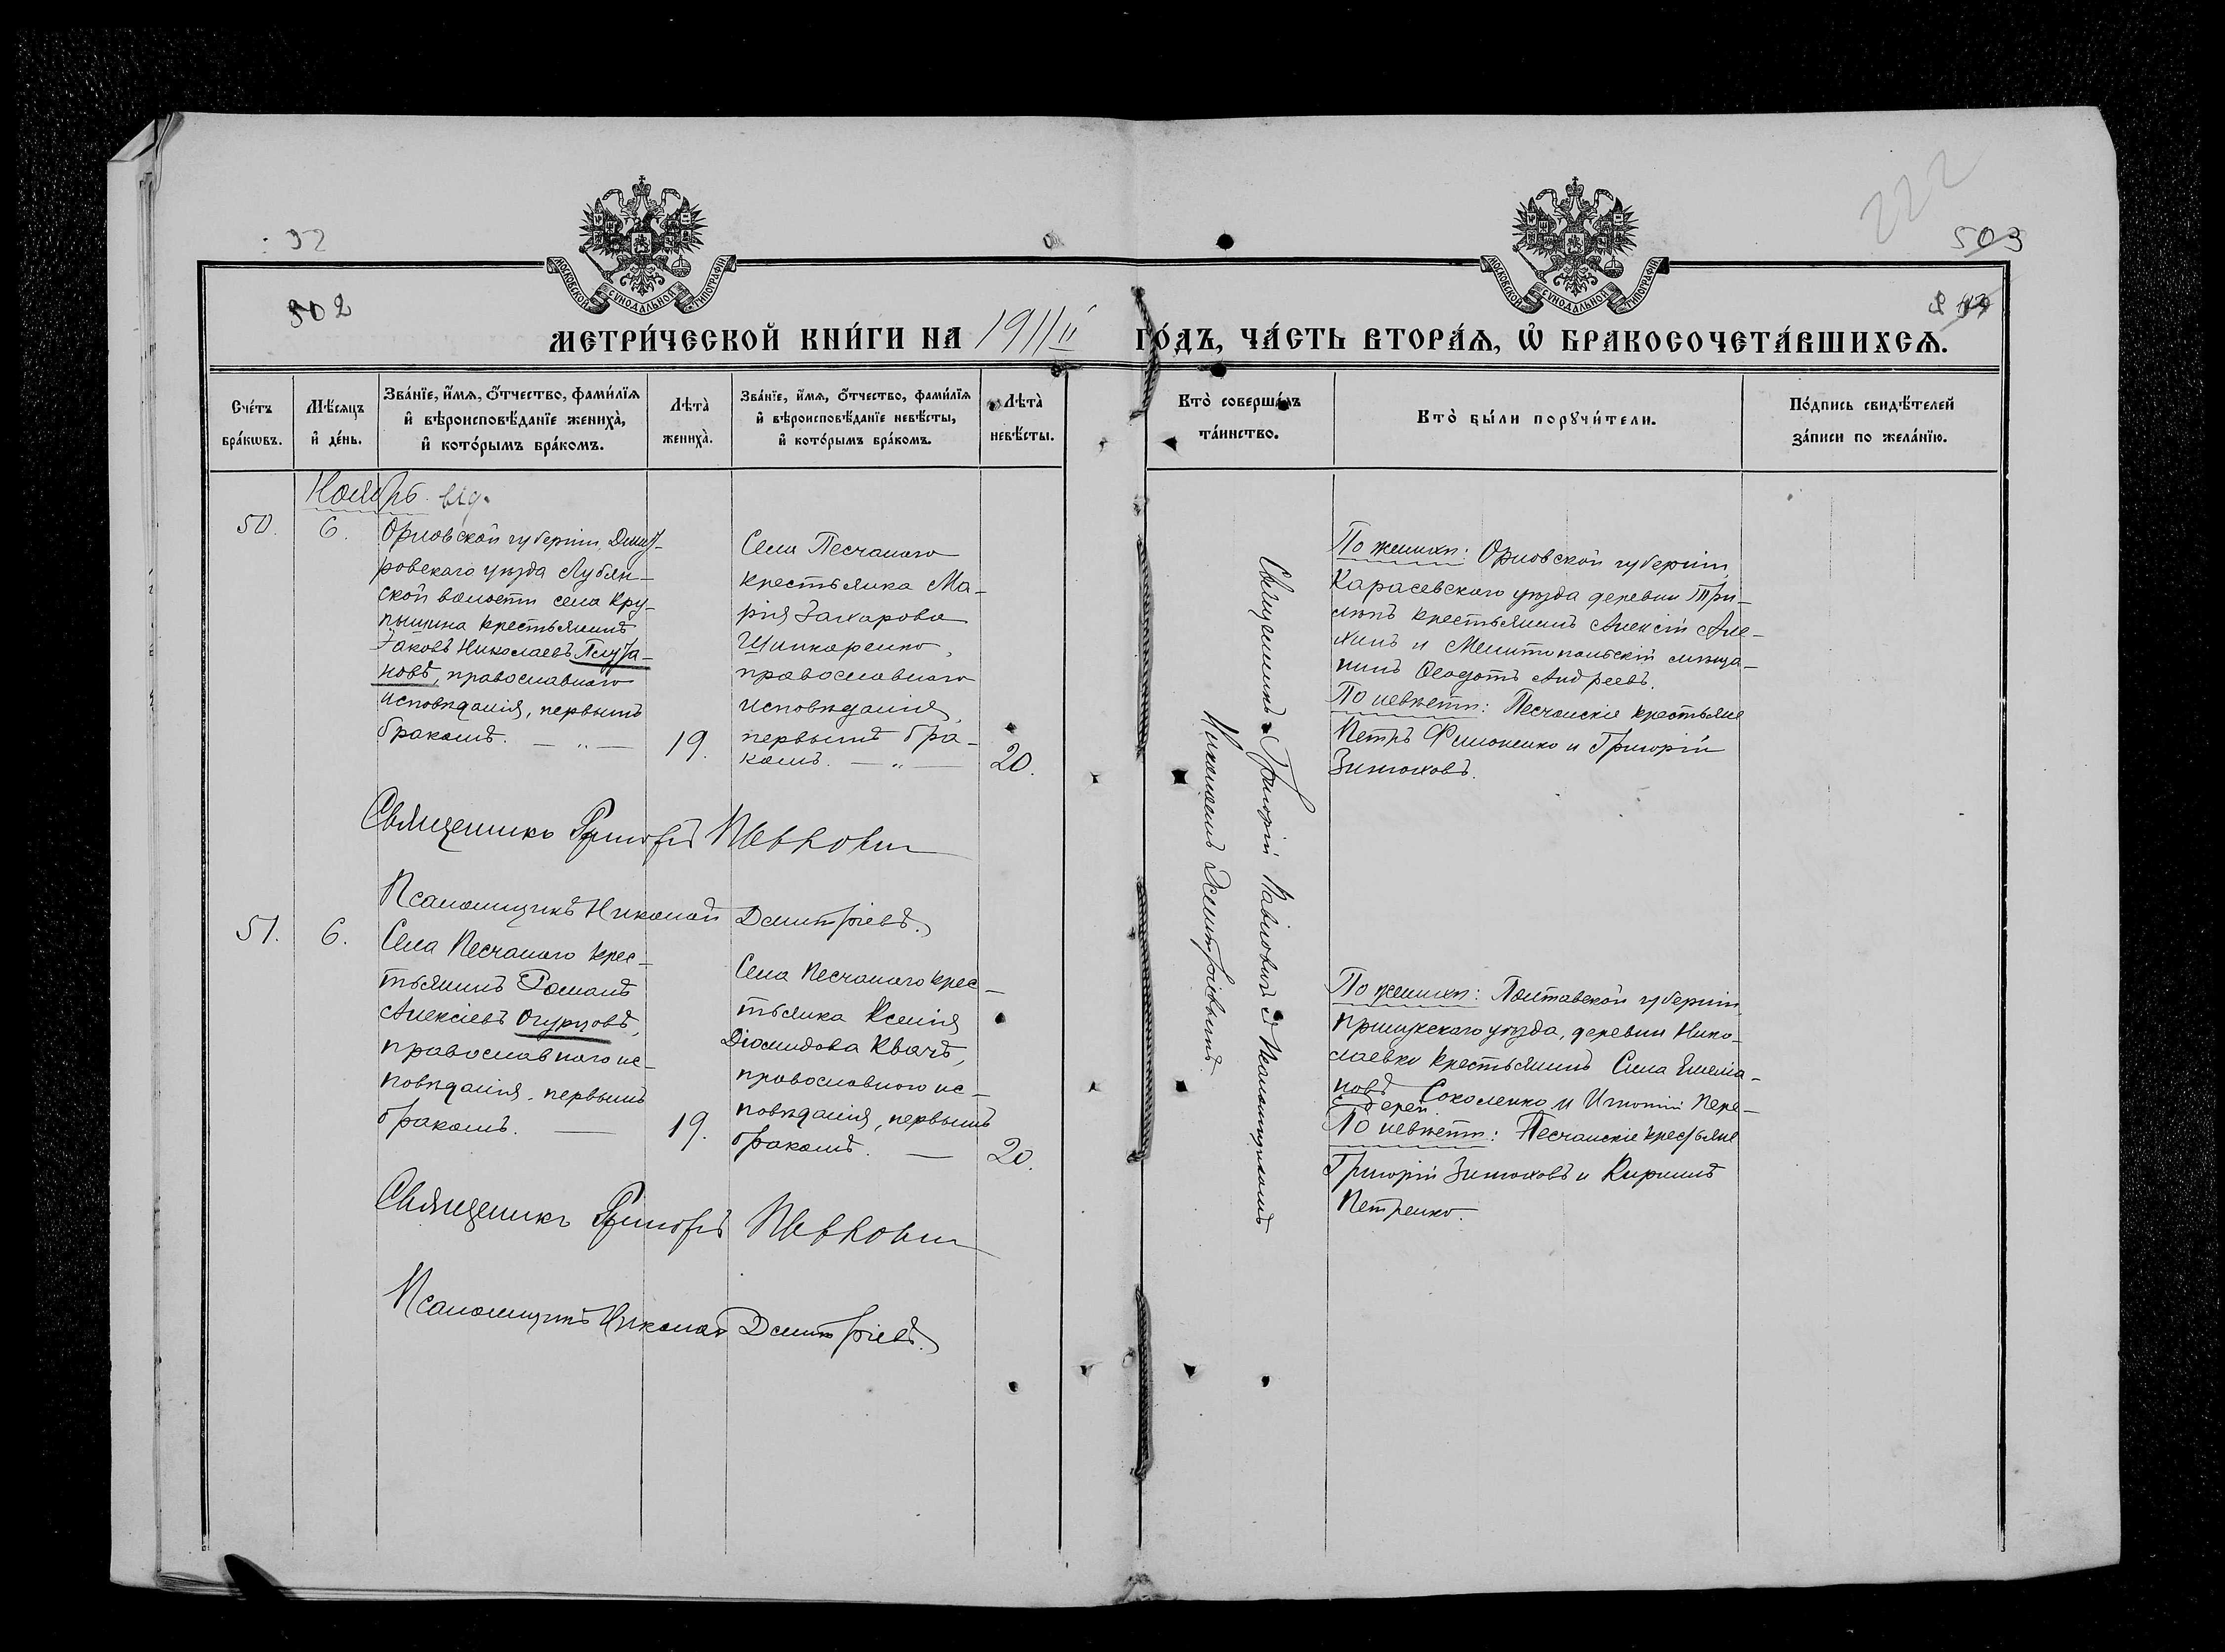 92
222
503
502
МОСКОВСКОЙ СѴНОДАЛЬНОЙ ТИПОГРАФІИ
МОСКОВСКОЙ СѴНОДАЛЬНОЙ ТИПОГРАФІИ
МЕТРИ́ЧЕСКОЙ КНИ́ГИ НА 1911 ГО́ДЪ, ЧА́СТЬ ВТОРА́Ѧ, Ѡ҆ БРАКОСОЧЕТА́ВШИХСѦ.
Сче́тъ бра́кѡвъ.
Мѣ́сяцъ и҆ де́нь.
Зва́нїе, и҆́мѧ, ѻ҆́тчество, фами́лїѧ
и҆ вѣроисповѣ́данїе жениха̀,
и҆ кото́рымъ бра́комъ.
Лѣта̀ жениха̀.
Зва́нїе, и҆́мѧ, ѻ҆́тчество, фами́лїѧ
и҆ вѣроисповѣ́данїе невѣ́сты,
и҆ кото́рымъ бра́комъ.
Лѣта̀ невѣ́сты.
Кто̀ соверша́лъ та́инство.
Кто̀ бы́ли порꙋчи́тели.
По́дпись свидѣ́телей за́писи по жела́нїю.
Ноябрь
50.
6.
Орловской губерніи, Дмит-
ровскаго уѣзда Лубян-
ской волости села Кру-
пышина крестьянинъ
Іаковъ Николаевъ Полуха-
новъ, православнаго
исповѣданія, первымъ
бракомъ. — „ —
19.
Села Песчаного
крестьянка Ма-
рія Захарова
Шинкаренко,
православнаго
исповѣданія,
первымъ бра-
комъ. — „ —
20.
Священникъ Григорій Павловичъ съ Псаломщикомъ
Николаемъ Дмитріевымъ.
По женихѣ: Орловской губерніи,
Карасевского уѣзда деревни Три-
крестьянинъ Алексій Але-
хинъ и Мелитопольскій мѣща-
нинъ Ѳеодотъ Андреевъ.
По невѣстѣ: Песчанскіе крестьяне
Петръ Филоненко и Григорій
Зинюховъ.
Священникъ Григорій
Псаломщикъ Николай Дмитріевъ.
51.
6.
Села Песчаного крес-
тьянинъ Романъ
Алексіевъ Огурцовъ,
православного ис-
повѣданія, первымъ
бракомъ. —
19.
Села Песчаного крес-
тьянка Ксенія
Діомидова Квачъ,
православного ис-
повѣданія, первымъ
бракомъ. —
20.
По женихѣ: Полтавской губерніи,
Прилукскаго уѣзда, деревни Нико-
лаевки крестьянинъ Сила Емелиа-
новъ Соколенко и Игнатій Пере-
дерей.
По невѣстѣ: Песчанскіе крестьяне
Григорій Зинюховъ и Кириллъ
Петренко.
Священникъ Григорій
Псаломщикъ Николай Дмитріевъ.